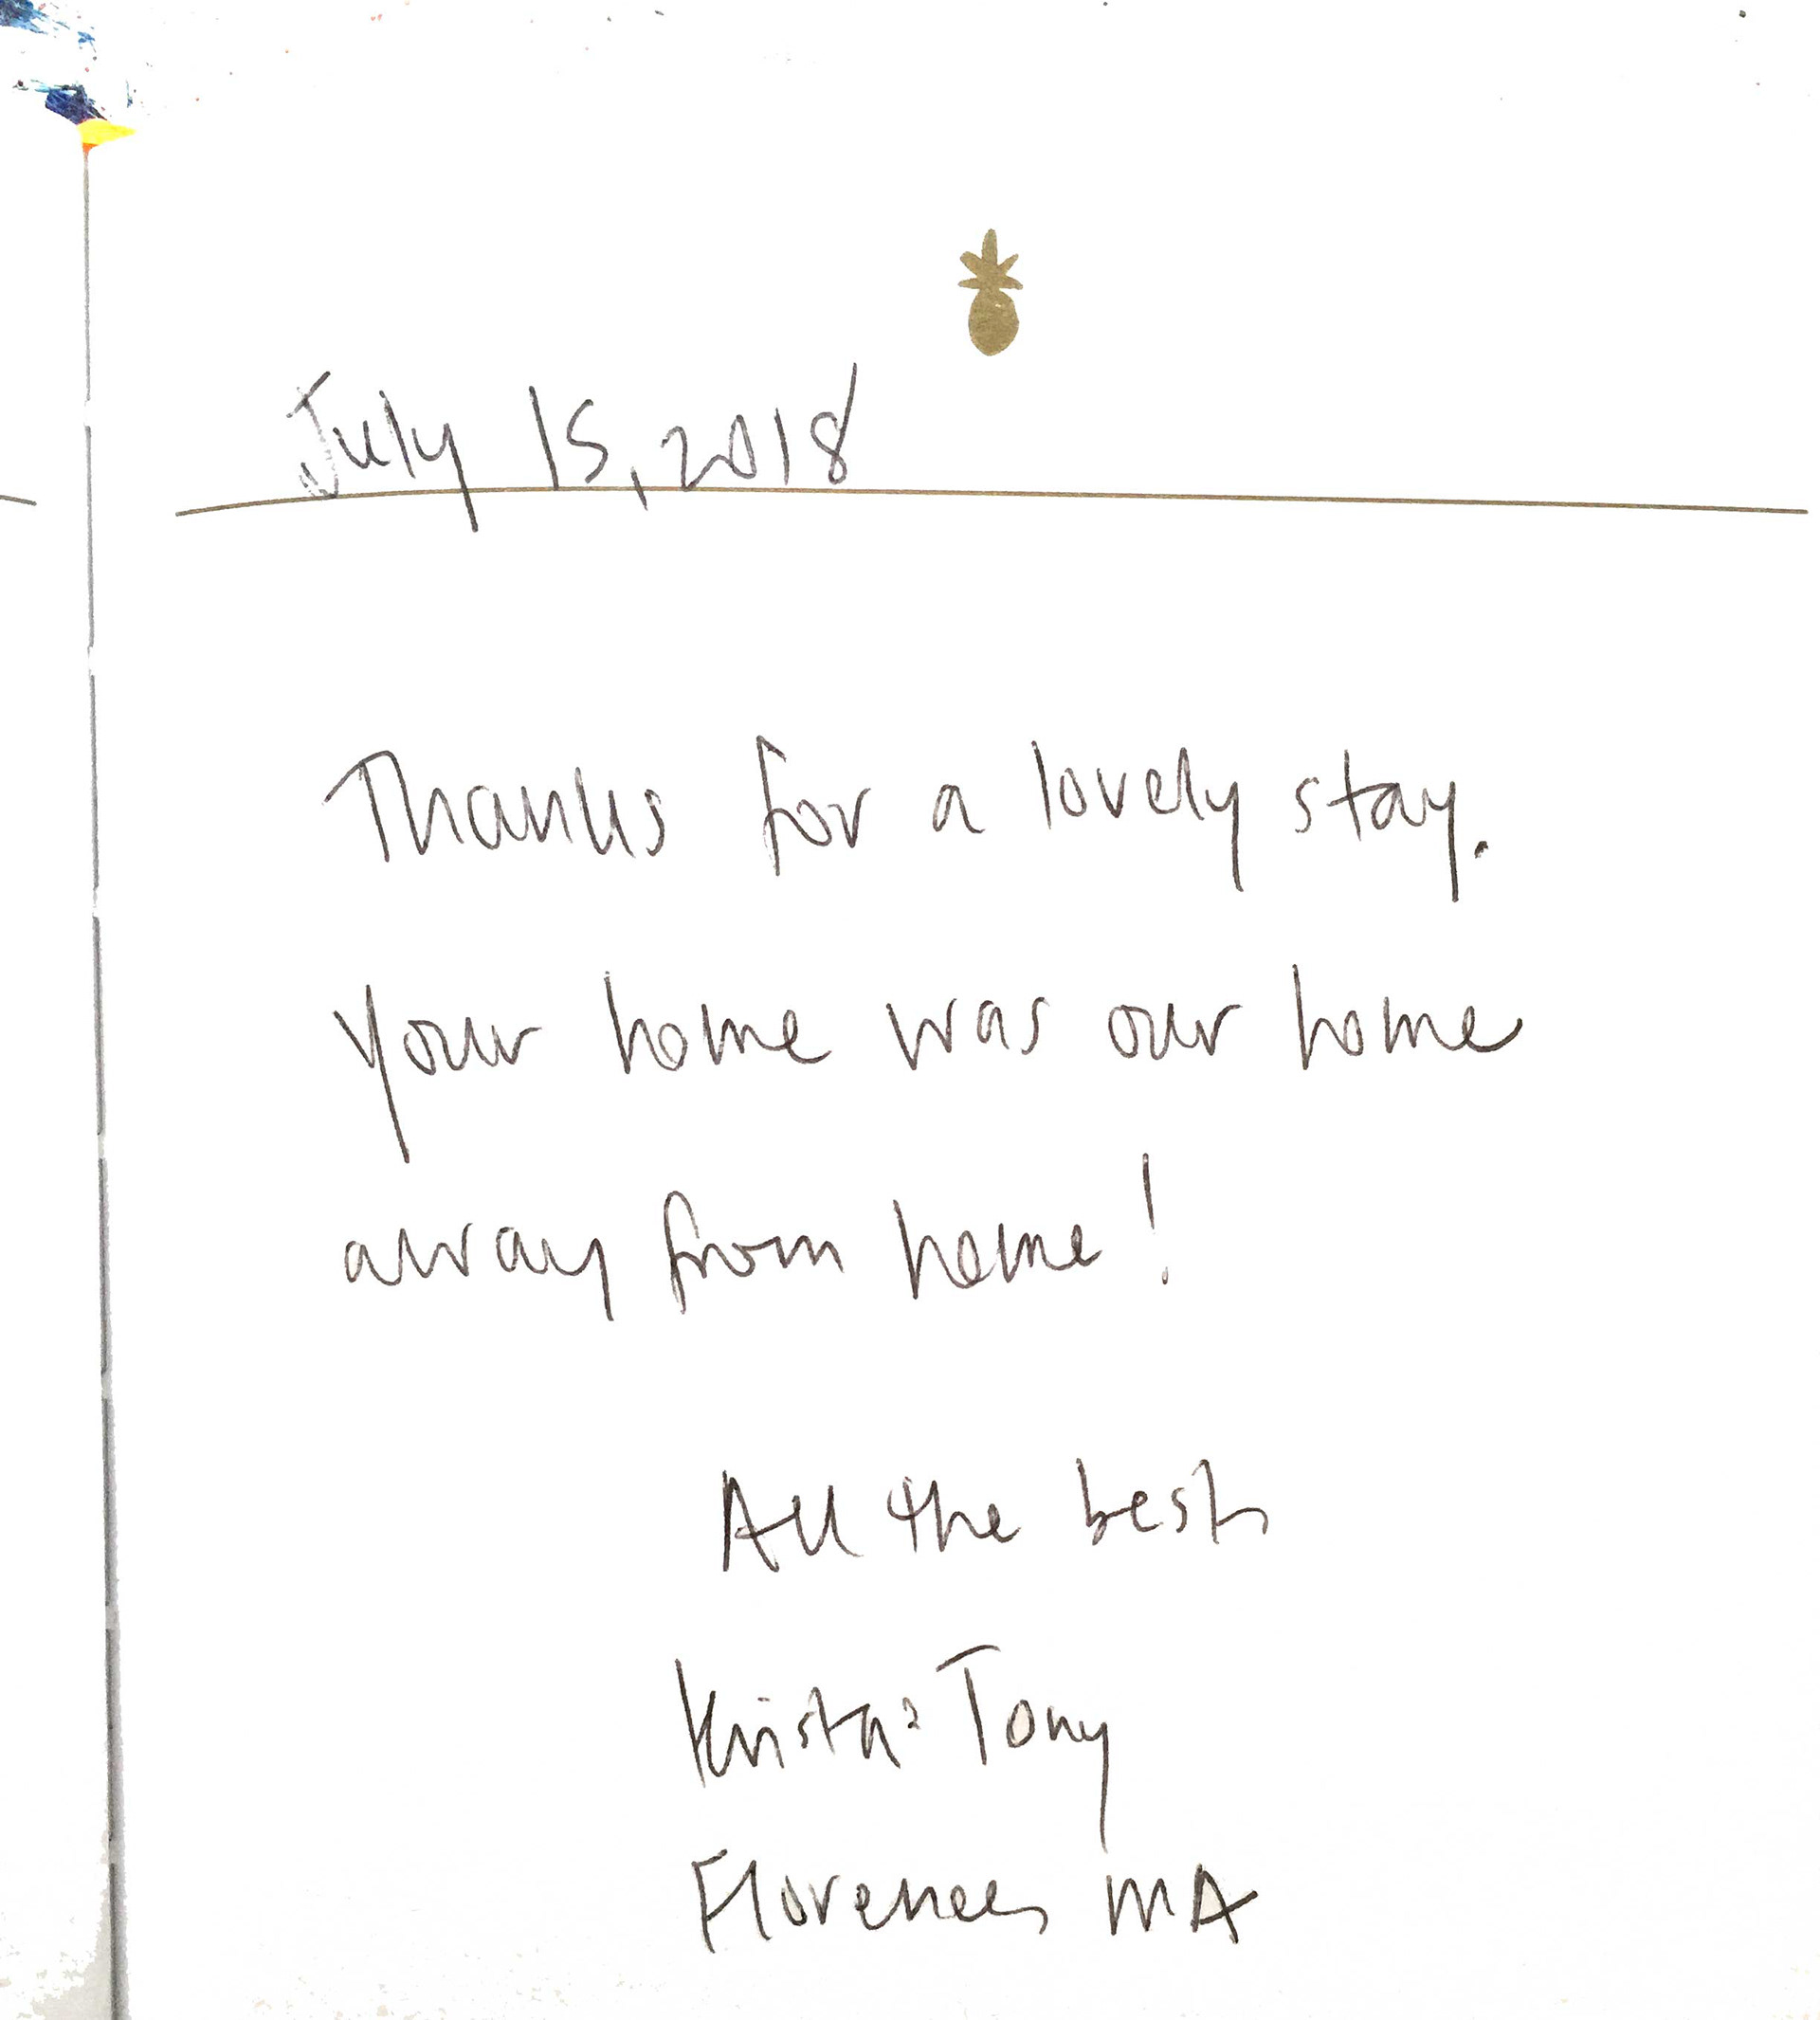 July 15, 2018
Thanks for a lovely stay.
Your home was our home
away from home!
All the best,
Krista & Tony
Florence, MA